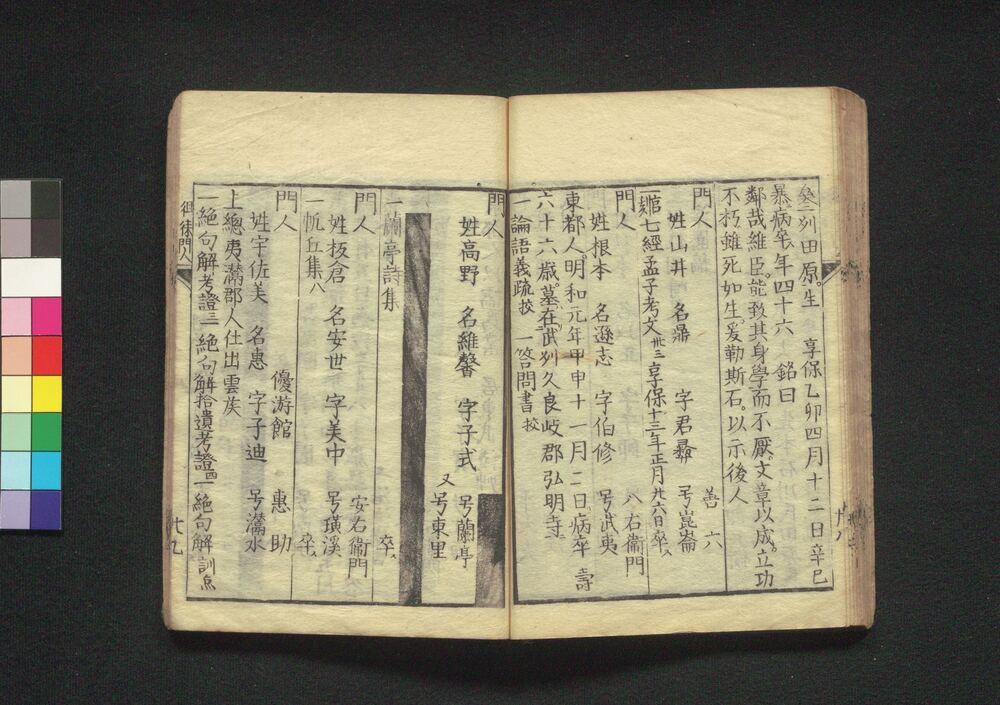 癸三列田原。生　享保乙卯四月十二日辛巳
暴病卒年四十六　銘曰
鄰哉維臣。能致其身學而不厭文章以成。立功
不朽雖死如生爰勒斯石。以示後人
門人　善六
姓山井　名鼎　字君彜　号崑崙
一七經孟子考文卅三享保十三年正月廿六日卒ス
門人　八右衞門
姓根本　名遜志　字伯修　号武夷
東都人。明和元年甲申十一月二日病卒　壽
六十六歳。墓在武州久良岐郡弘明寺
一論語義疏校　一答問書校
門人
姓高野　名維馨　字子式　号蘭亭
又号東里
卒ス
一蘭亭詩集
門人　安右衞門
姓板倉　名安世　字美中　号璜溪
一帆丘集八　卒ス
門人　優游館　惠助
姓宇佐美　名惠　字子迪　号灊水
上總夷灊郡人仕出雲侯
一絶句解考證三一絶句解拾遺考證四一絶句解訓点
徂徠門人
廿八
廿九